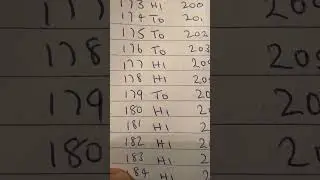 173 Hi 200
174 To 201
175 To 202
176 To 203
177 Hi 20
178 Hi 20
179 To 20
180 Hi 20
181 Hi 2
182 Hi 2
183 Hi 2
184 Hi
178
179
180